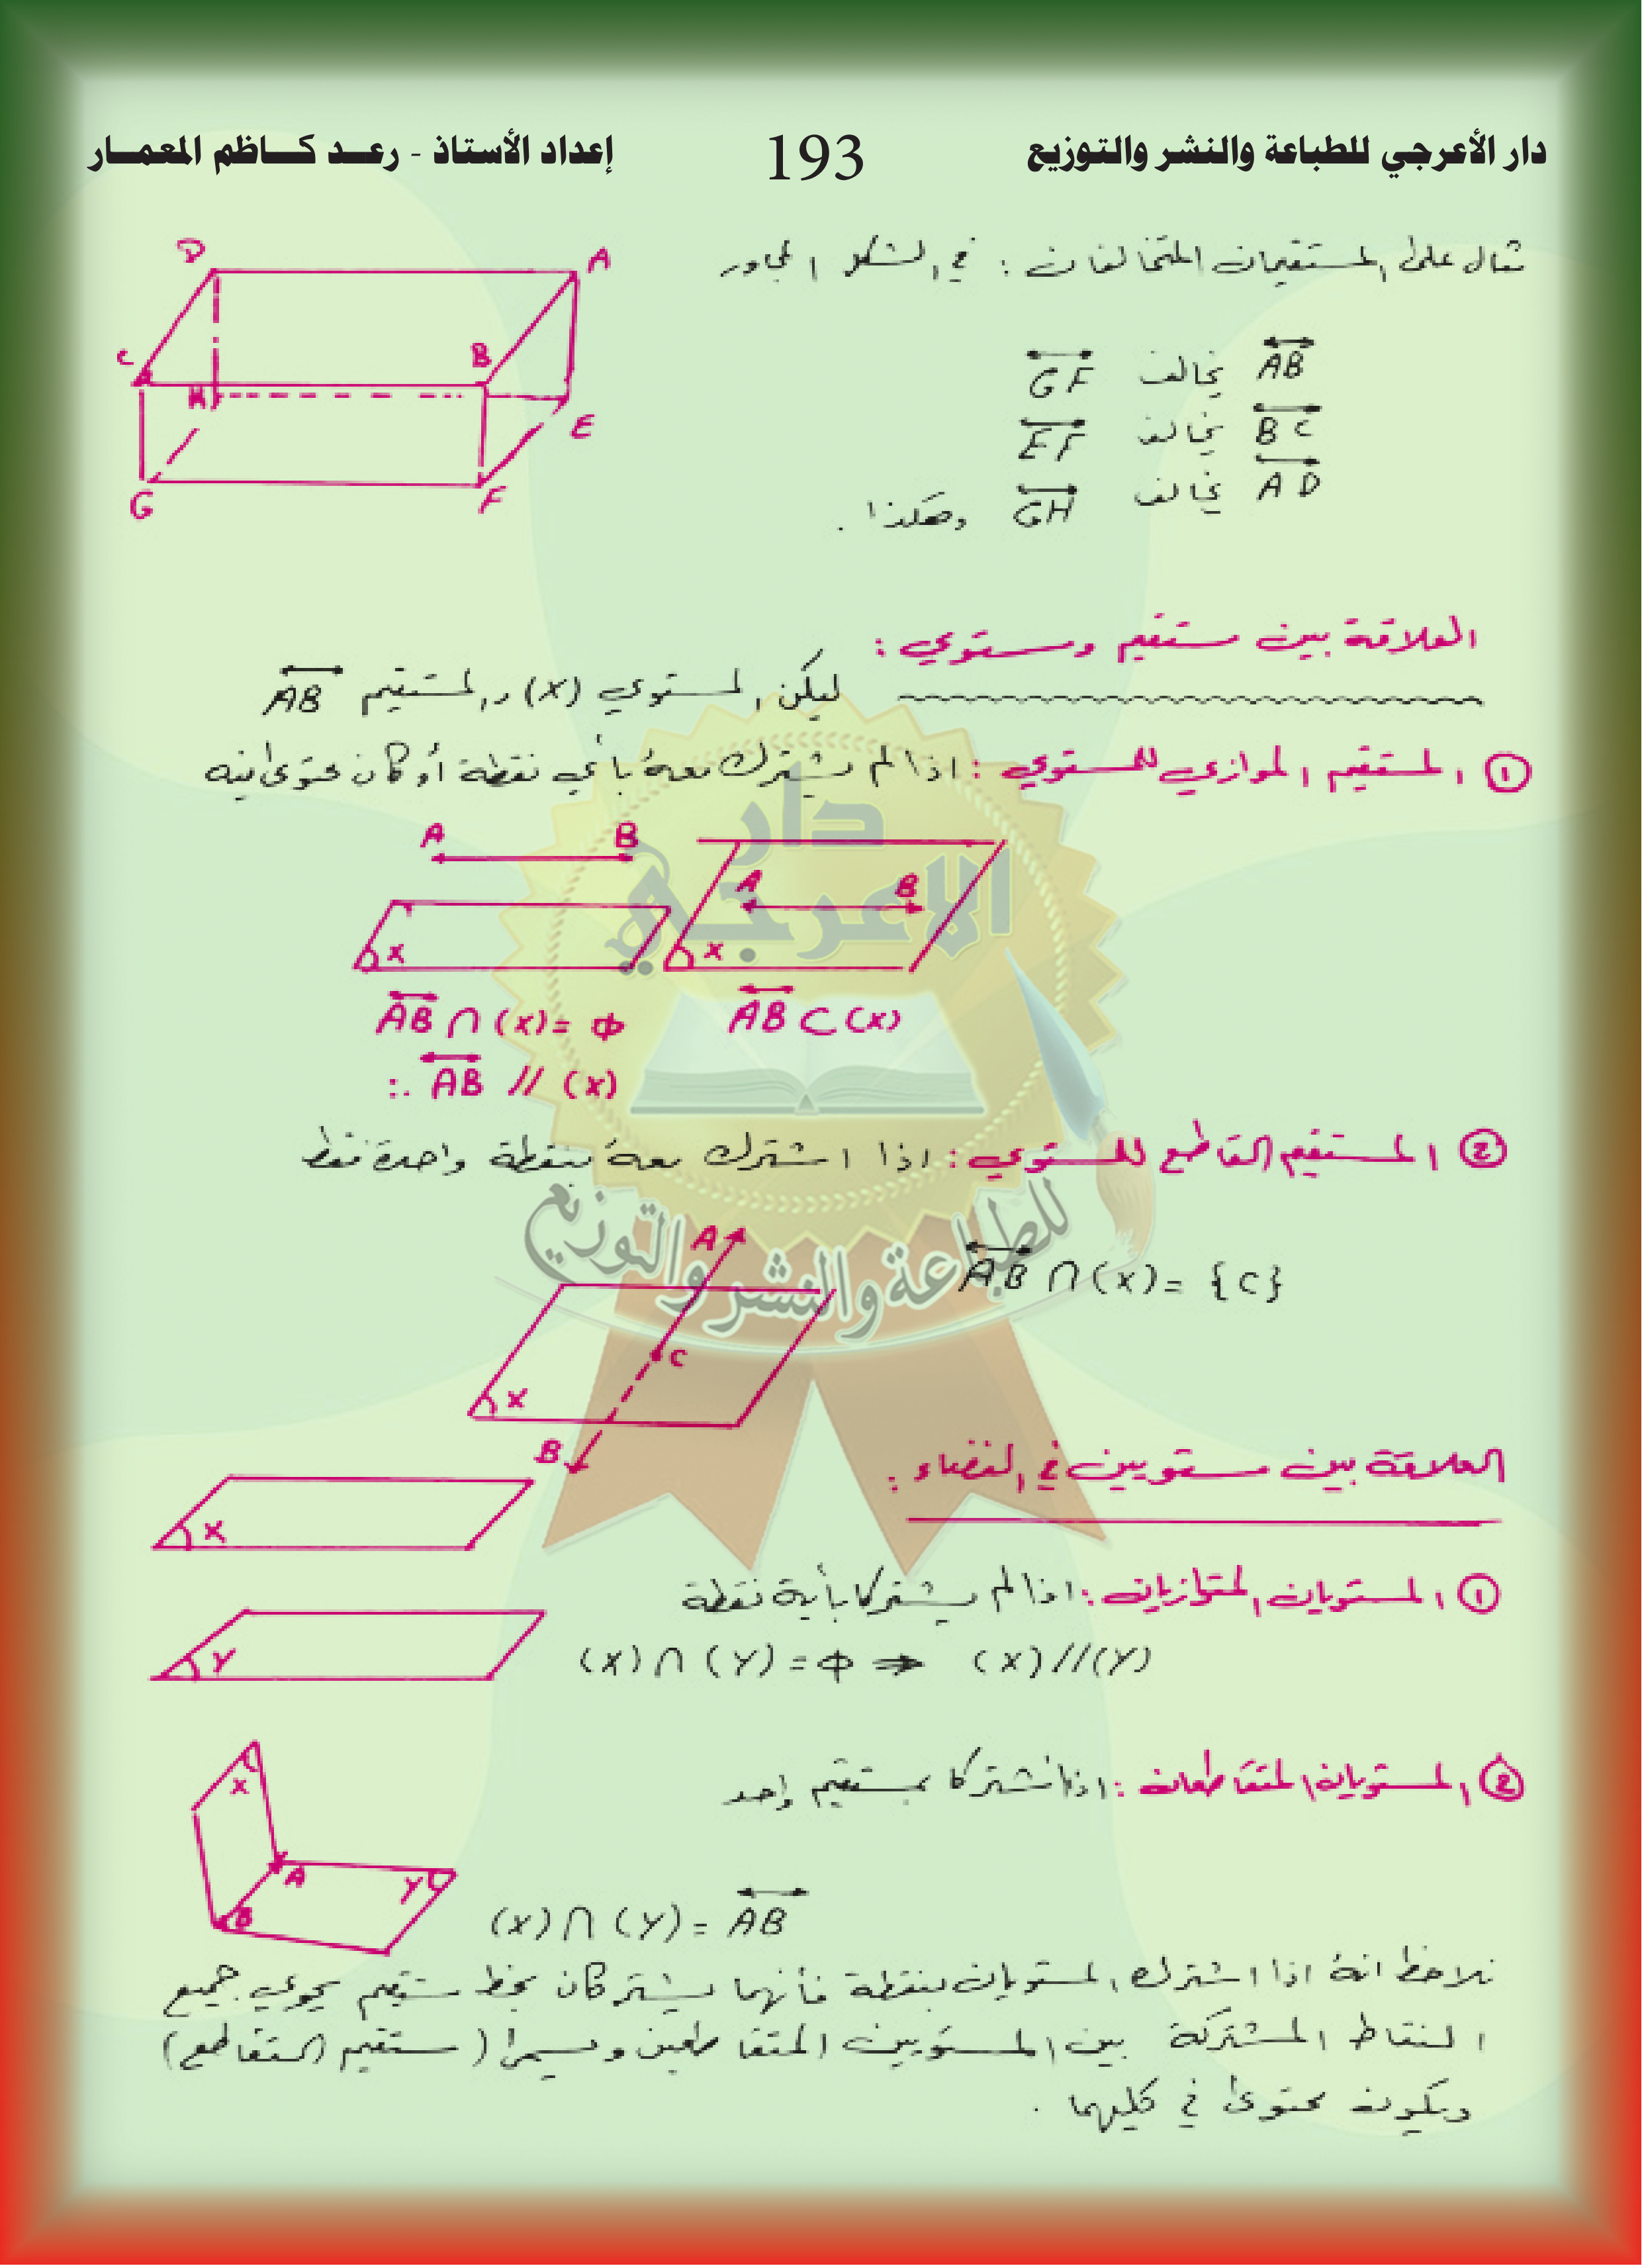 دار الأعرجي للطباعة والنشر والتوزيع 193 إعداد الأستاذ - رعد كاظم المعمار
مثال على المستقيمان المتخالفان : في الشكل المجاور
D A
C B
H E
G F
AB يخالف GF
BC يخالف EF
AD يخالف GH وهكذا .
العلاقة بين مستقيم ومستوي :
ليكن المستوي (X) والمستقيم AB
① المستقيم الموازي للمستوي : اذا لم يشترك معه بأي نقطة أو كان محتوى فيه
A B
X
A B
X
AB ∩ (X) = Φ
AB ⊂ (X)
∴ AB // (X)
② المستقيم القاطع للمستوي : اذا اشترك معه بنقطة واحدة فقط
A
C
X
B
AB ∩ (X) = {C}
العلاقة بين مستويين في الفضاء :
X
① المستويان المتوازيان : اذا لم يشتركا بأية نقطة
Y
(X) ∩ (Y) = Φ ⇒ (X) // (Y)
② المستويان المتقاطعان : اذا اشتركا بمستقيم واحد
X
A Y
B
(X) ∩ (Y) = AB
نلاحظ انه اذا اشترك المستويان بنقطة فأنهما يشتركان بخط مستقيم يحوي جميع
النقاط المشتركة بين المستويين المتقاطعين ويسمى (مستقيم التقاطع)
ويكون محتوى في كليهما .
دار
الاعرجي
للطباعة والنشر والتوزيع